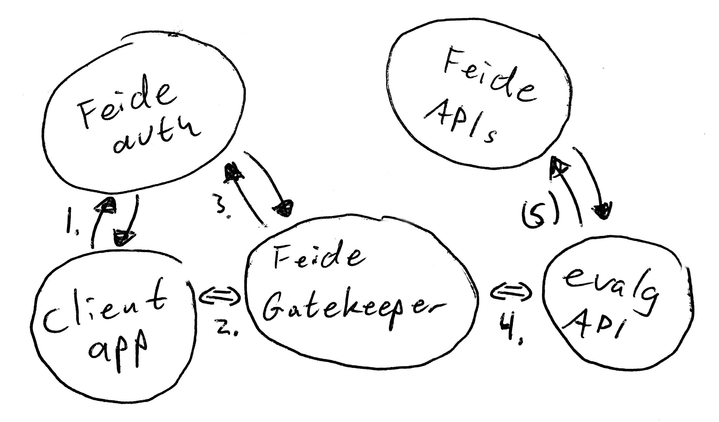 Feide
auth
Feide
APIs
1.
3.
(5)
Client
app
2.
Feide
Gatekeeper
4.
evalg
API